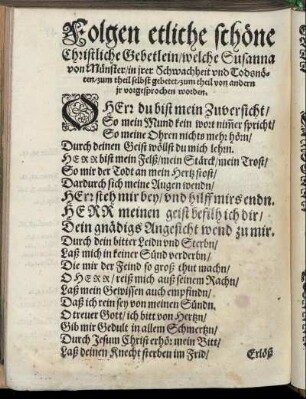 Folgen etliche schöne
Christliche Gebetlein / welche Susanna
von Münster / in jrer Schwachheit vnd Todsnö-
ten / zum theil selbst gebetet / zum theil von andern
jr vorgesprochen worden.
O HErr du bist mein Zuversicht /
So mein Mund kein wort nim̃er spricht /
So meine Ohren nichts mehr hörn /
Durch deinen Geist wöllst du mich lehrn.
HERR bist mein Felß / mein Stärck / mein Trost /
So mir der Todt an mein Hertz stost /
Dardurch sich meine Augen wendn /
HErr steh mir bey / vnd hilff mirs endn.
HERR meinen geist befilh ich dir /
Dein gnädigs Angesicht wend zu mir.
Durch dein bitter Leidn vnd Sterbn /
Laß mich in keiner Sünd verderbn /
Die mir der Feind so groß thut machn /
O HERR / reiß mich auß seinem Rachn /
Laß mein Gewissen auch empfindn /
Daß ich rein sey von meinen Sündn.
O treuer Gott / ich bitt von Hertzn /
Gib mir Gedult in allem Schmertzn /
Durch Jesum Christ erhör mein Bitt /
Laß deinen Knecht sterben im Frid /
Erlöß